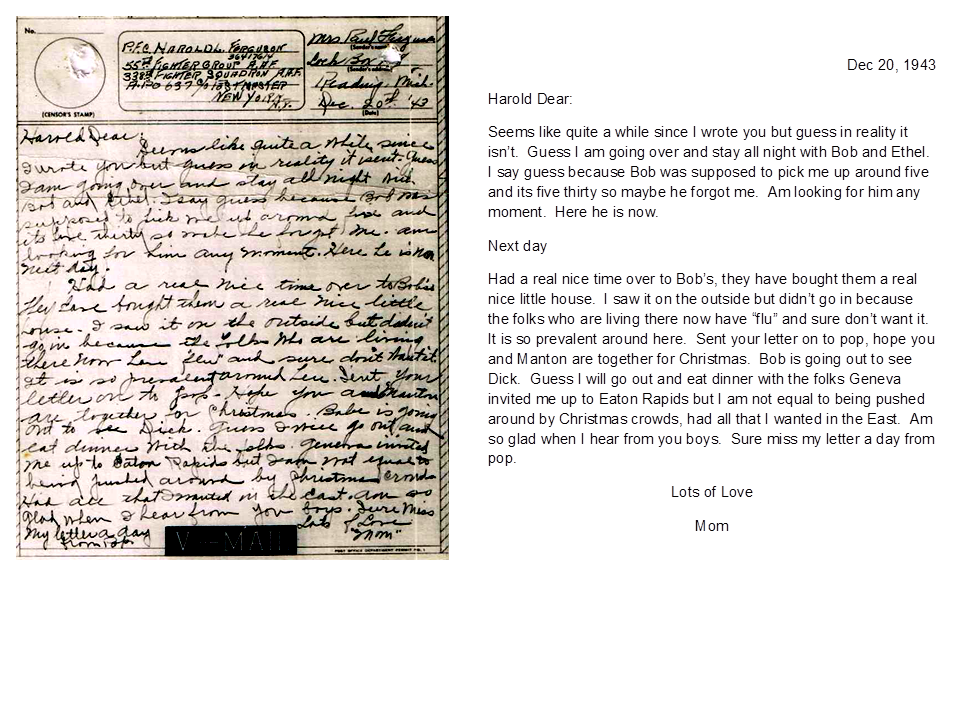 No.
(CENSOR'S STAMP)
P.F.C. HAROLD L. FERGUSON
36417614
55th FIGHTER GROUP A.A.F.
338th FIGHTER SQUADRON A.A.F.
A.P.O 637 % POSTMASTER
NEW YORK
N.Y.
Mrs Paul Ferguson
(Sender's name)
Lock Box
(Sender's address)
Reading, Mich.
Dec. 20th '43
(Date)
Harold Dear:
Seems like quite a while since
I wrote you but guess in reality it isent. Guess
I am going over and stay all night with
Bob and Ethel. I say guess because Bob was
supposed to pick me up around five and
its five thirty so maybe he forgot me. am
looking for him any moment. Here he is now
next day.
Had a real nice time over to Bob's
they have bought them a real nice little
house. I saw it on the outside but dident
go in because the folks who are living
there now have "flu" and sure don't want it
It is so prevalent around here. Sent your
letter on to pop. Hope you and Manton
are together for Christmas. Babe is going
out to see Dick. Guess I will go out and
eat dinner with the folks. Geneva invited
me up to Eaton Rapids but I am not equal to
being pushed around by Christmas crowds
Had all that I wanted in the east. am so
glad when I hear from you boys. Sure Miss
my letter a day Lots of Love
from pop. "Mom"
V-MAIL
POST OFFICE DEPARTMENT PERMIT NO. 1
Dec 20, 1943
Harold Dear:
Seems like quite a while since I wrote you but guess in reality it
isn't. Guess I am going over and stay all night with Bob and Ethel.
I say guess because Bob was supposed to pick me up around five
and its five thirty so maybe he forgot me. Am looking for him any
moment. Here he is now.
Next day
Had a real nice time over to Bob's, they have bought them a real
nice little house. I saw it on the outside but didn't go in because
the folks who are living there now have “flu” and sure don't want it.
It is so prevalent around here. Sent your letter on to pop, hope you
and Manton are together for Christmas. Bob is going out to see
Dick. Guess I will go out and eat dinner with the folks Geneva
invited me up to Eaton Rapids but I am not equal to being pushed
around by Christmas crowds, had all that I wanted in the East. Am
so glad when I hear from you boys. Sure miss my letter a day from
pop.
Lots of Love
Mom